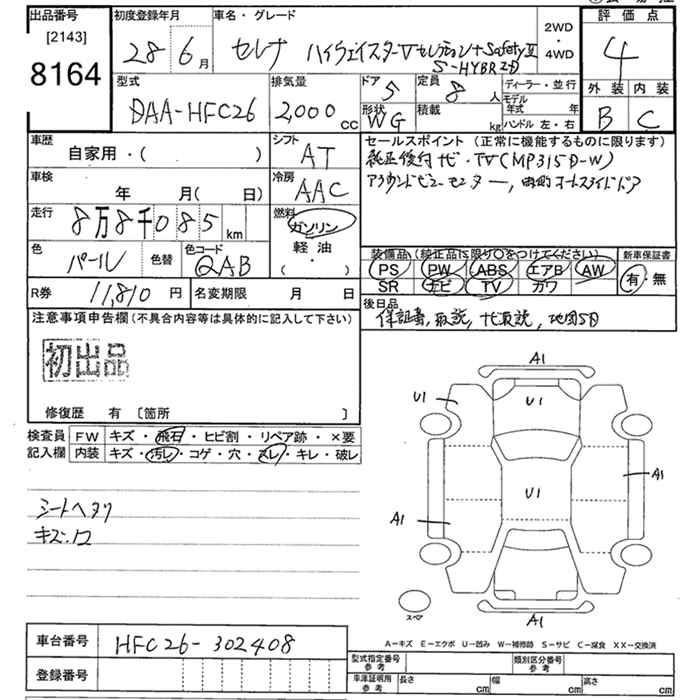 出品番号 初度登録年月 車名・グレード 評価点
[2143]
8164
28年6月 セレナ ハイウェイスターVセレクション+SafetyⅡ
S-HYBRID
2WD
・
4WD
4
型式 排気量 ドア 定員 ディーラー・並行
DAA-HFC26 2,000cc 5 8人
形状 積載 モデル年式 年
WG kg ハンドル 左・右
外装 内装
B C
車歴 シフト セールスポイント (正常に機能するものに限ります)
自家用・( ) AT 純正後付ナビ・TV(MP315D-W)
車検 冷房 アラウンドビューモニター,両側オートスライドドア
年 月( 日) AAC
走行 燃料
8万8千085km ガソリン
軽油
( ・ )
色 色替 色コード
パール QAB
装備品 (純正品に限り○をつけてください) 新車保証書
PS PW ABS エアB AW 有・無
SR ナビ TV カワ
R券 11,810円 名変期限 月 日
後日品
保証書,取説,ナビ取説,地図SD
注意事項申告欄 (不具合内容等は具体的に記入して下さい)
初出品
修復歴 有 [箇所 ]
検査員 FW キズ・飛石・ヒビ割・リペア跡・×要
記入欄 内装 キズ・汚レ・コゲ・穴・スレ・キレ・破レ
シートヘタリ
キズ・凹
A1
U1 U1
A1
U1
A1
スペア
A1
A－キズ E－エクボ U－凹み W－補修跡 S－サビ C－腐食 XX－交換済
車台番号 HFC26-302408
登録番号
型式指定番号 参考 類別区分番号 参考
車庫証明用 参考 長さ cm 幅 cm 高さ cm